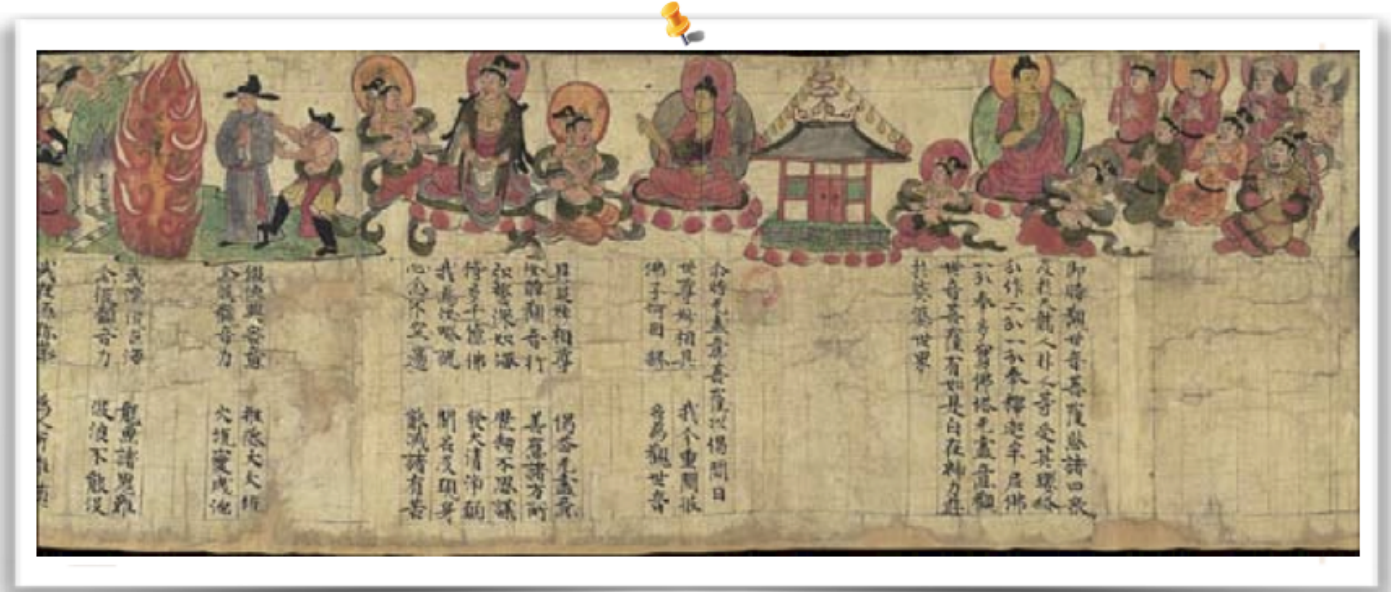 即時觀世音菩薩愍諸四眾
及於天龍人非人等受其瓔珞
分作二分一分奉釋迦牟尼佛
一分奉多寶佛塔无盡意觀
世音菩薩有如是自在神力遊
於娑婆世界
尒時无盡意菩薩以偈問曰
世尊妙相具 我今重問彼
佛子何因緣 名為觀世音
具足妙相尊 偈答无盡意
汝聽觀音行 善應諸方所
弘誓深如海 歷劫不思議
侍多千億佛 發大清淨願
我為汝略說 聞名及見身
心念不空過 能滅諸有苦
假使興害意 推落大火坑
念彼觀音力 火坑變成池
或漂流巨海 龍魚諸鬼難
念彼觀音力 波浪不能沒